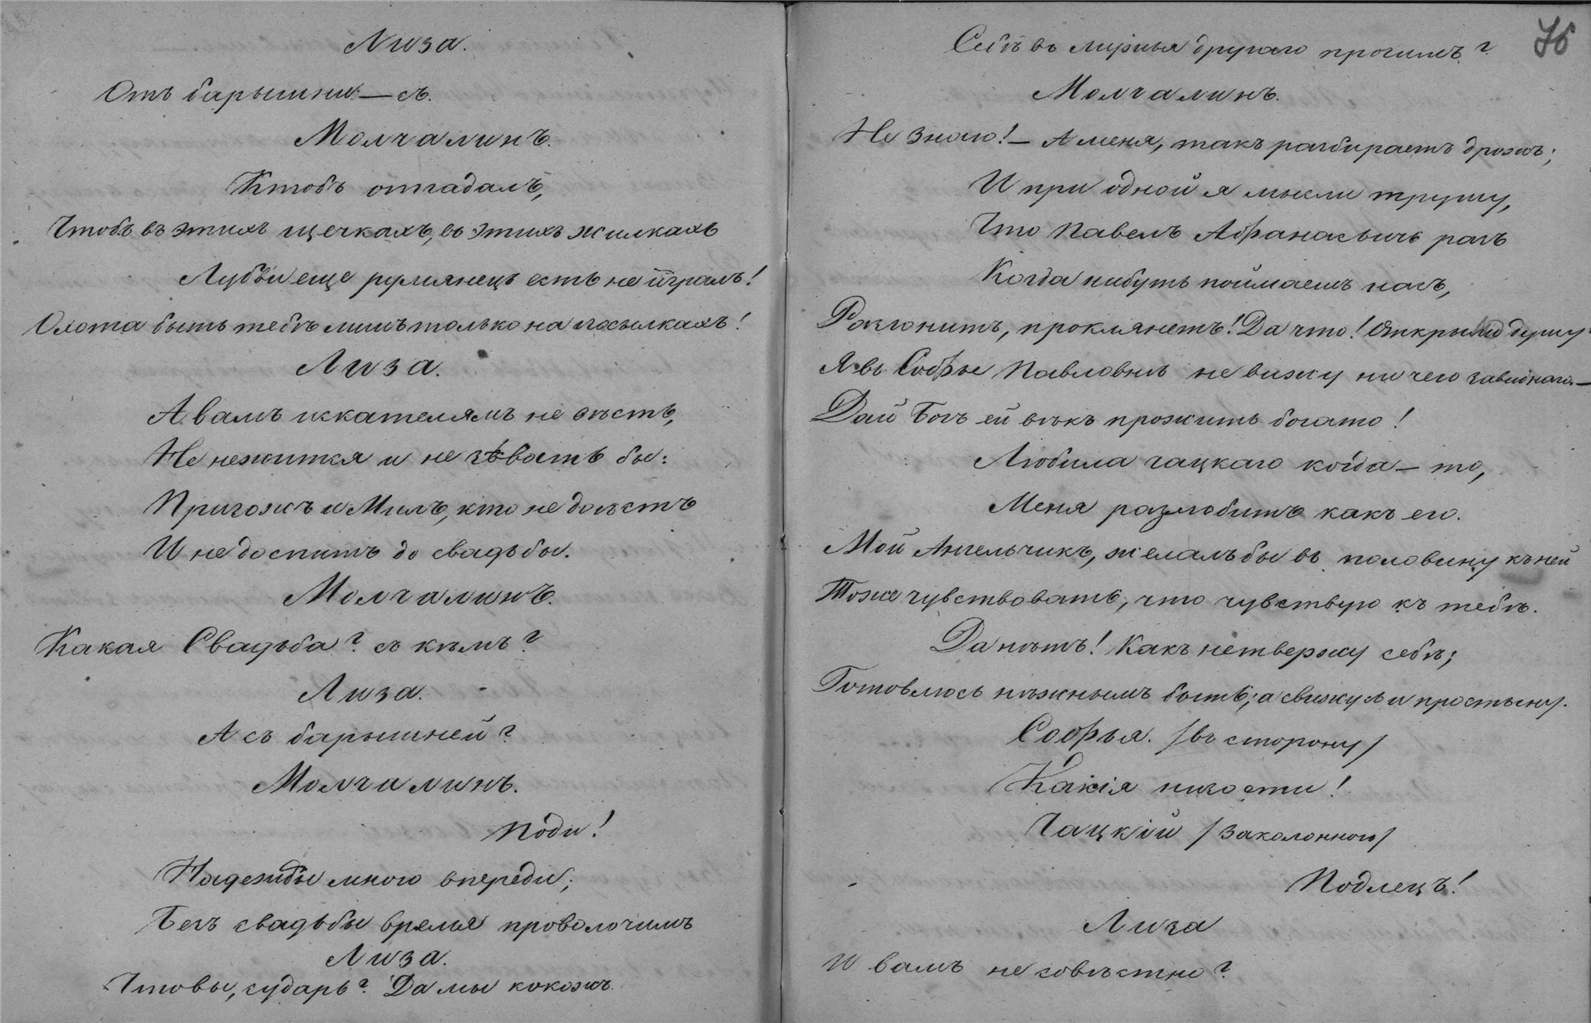 Лиза.
Отъ барышни — съ.
Молчалинъ.
Ктобъ отгадалъ,
Чтобъ въ этихъ щечкахъ, въ этихъ жилкахъ
Любви еще румянецъ есть не игралъ!
Охота быть тебѣ лишь только на посылкахъ!
Лиза.
А вамъ искателямъ не вѣстъ,
Не нежится и не зѣвать бы:
Пригожъ и Милъ, кто не доѣстъ
И не доспитъ до свадьбы.
Молчалинъ.
Какая Свадьба? съ кѣмъ?
Лиза.
А съ барышней?
Молчалинъ.
Поди!
Надежды много впереди;
Безъ свадьбы время проволочимъ
Лиза.
Чтовы, сударь? Да мы кокожъ
76
Себѣ въ мужья другаго прочимъ?
Молчалинъ.
Не знаю! — А меня, такъ разбираетъ дрожь;
И при одной я мысли трушу,
Что Павелъ Афанасьичь разъ
Когда нибуть поймаетъ насъ,
Разгонитъ, проклянетъ! Да что! Открыть душу?
Я въ Софье Павловнѣ не вижу ни чего завиднаго —
Дай Богъ ей вѣкъ прожить богато!
Любила чацкаго когда — то,
Меня разлюбитъ какъ его.
Мой Ангельчикъ, желалъ бы въ половину къ ней
Тоже чувствовать, что чувствую къ тебѣ.
Да нѣтъ! Какъ нетвержу себѣ;
Готовлюсь нѣжнымъ быть, а свижусь и простыну.
Софья. /въ сторону/
Какія нисости!
Чацкій /заколонною/
Подлецъ!
Лиза
И вамъ не совѣстно?